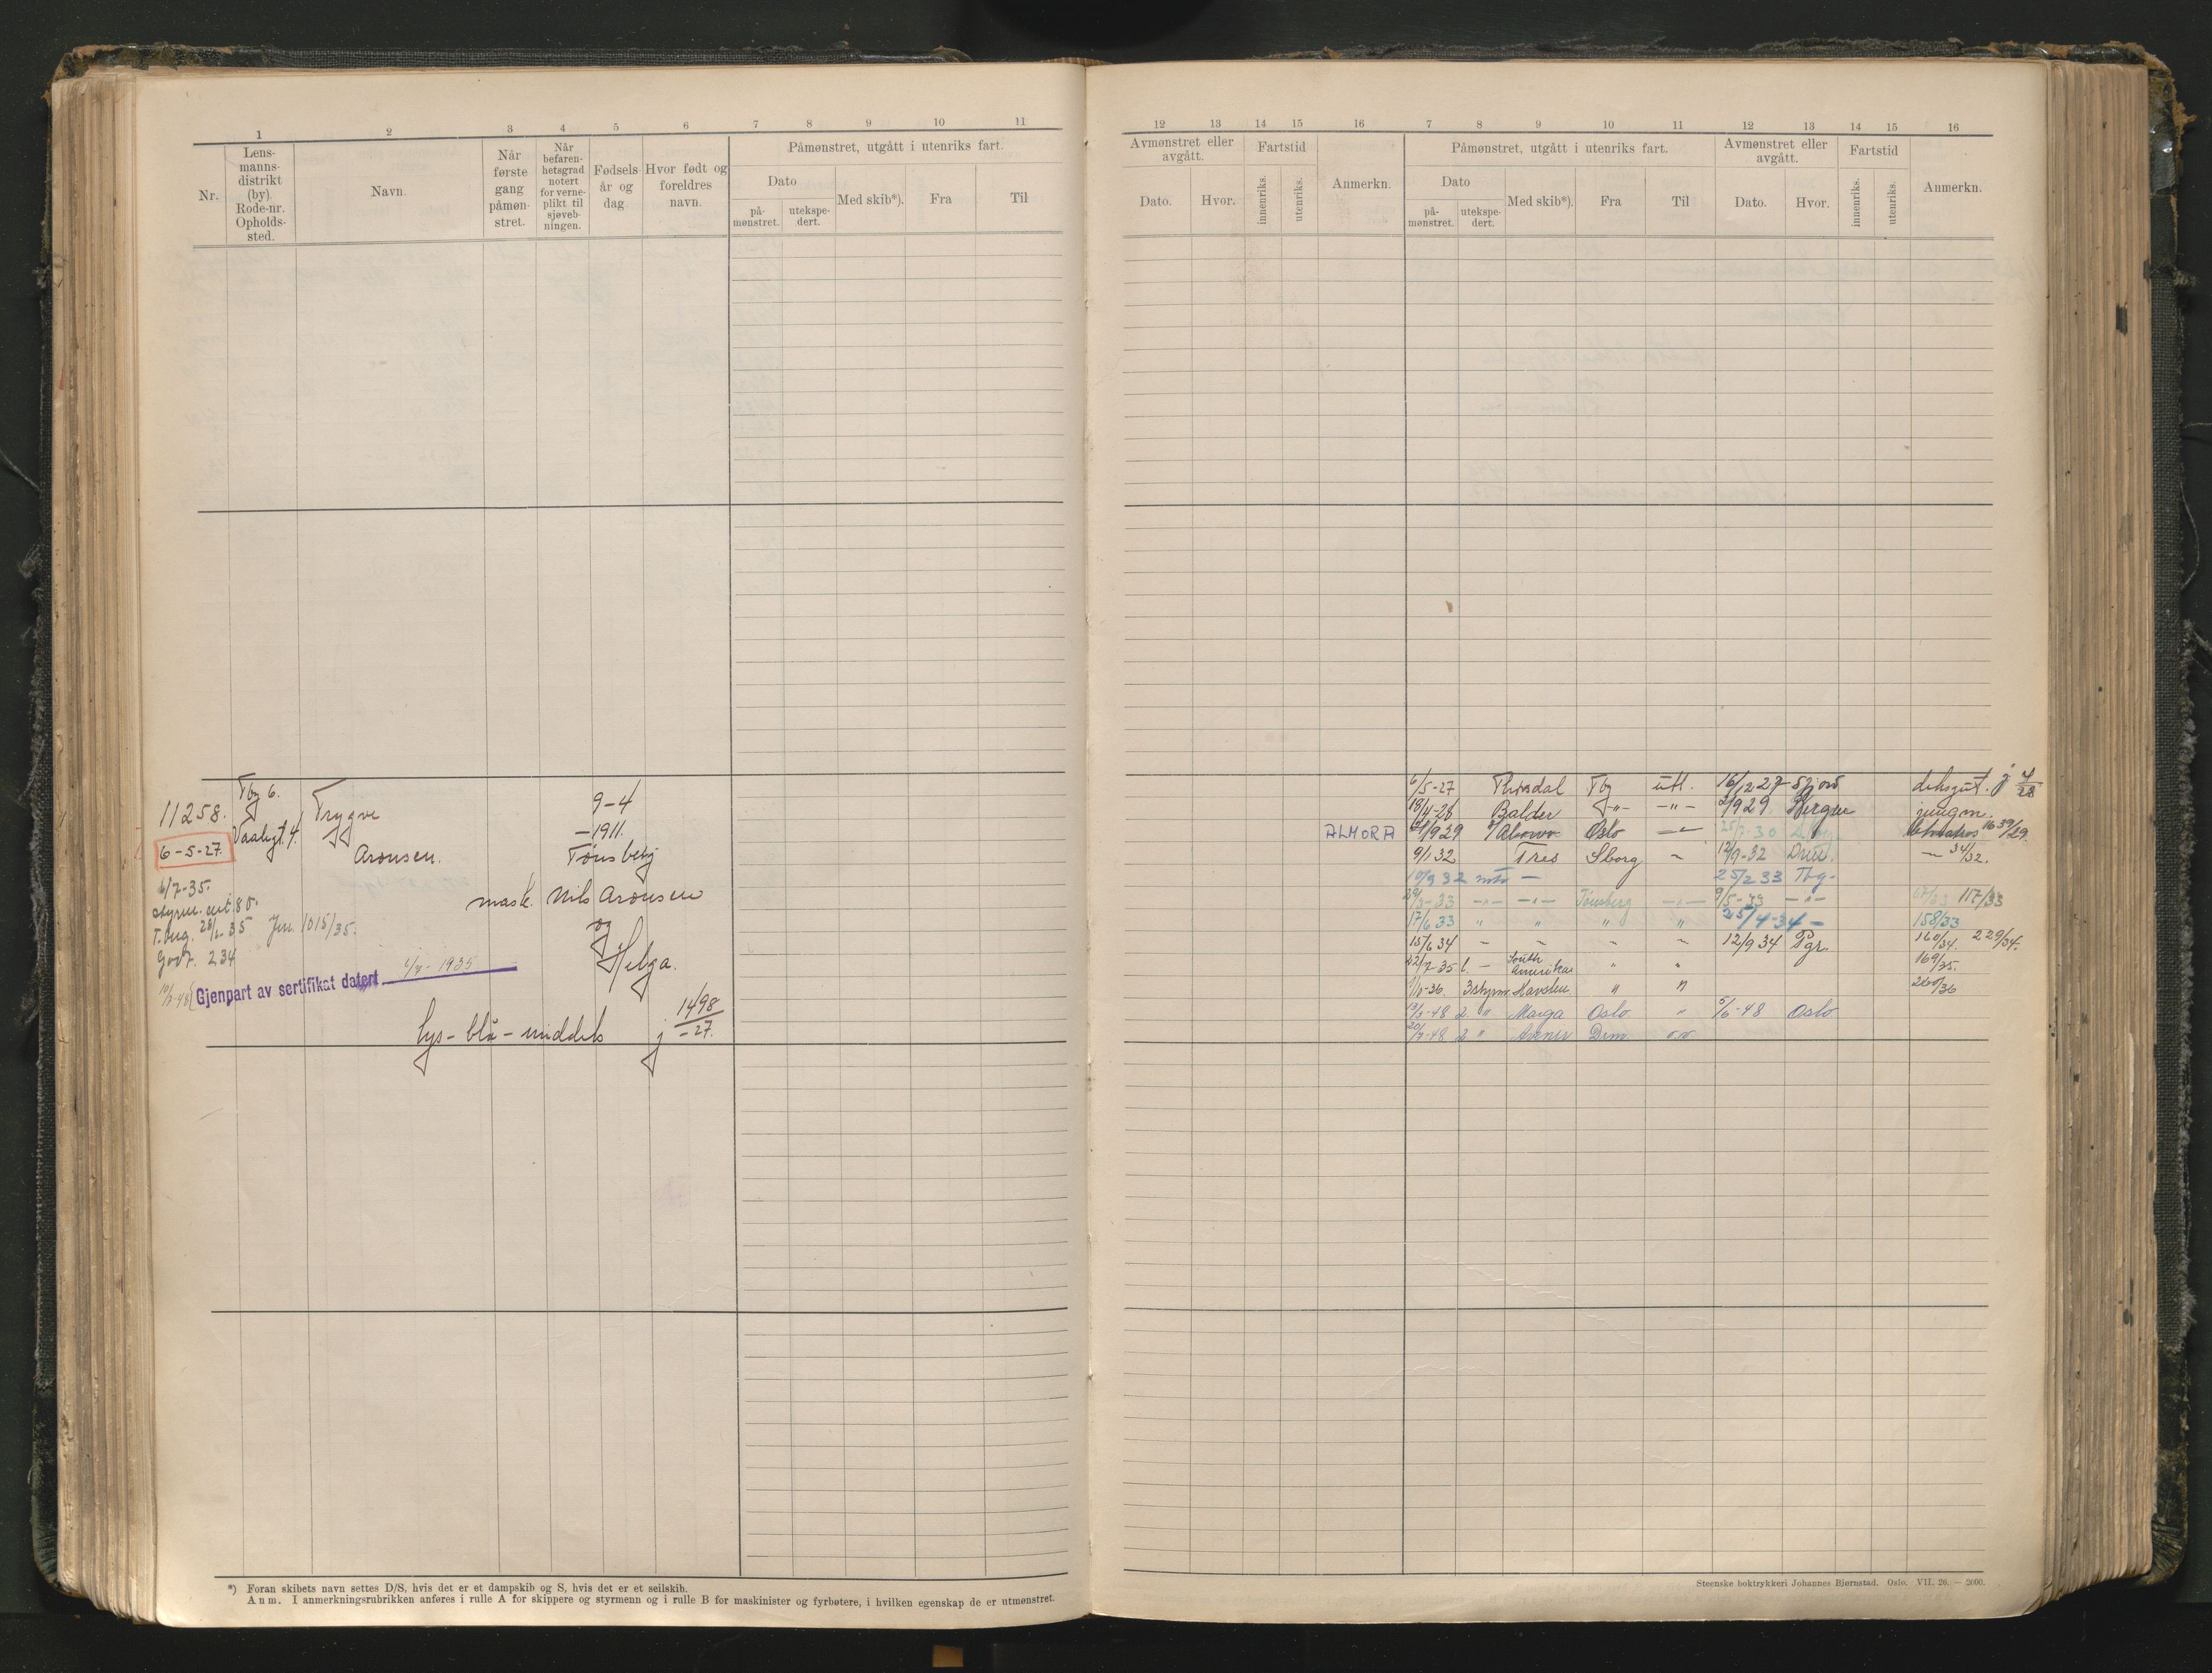 1 2 3 4 5 6 7 8 9 10 11
Nr.
Lens-
manns-
distrikt
(by).
Rode-nr.
Opholds-
sted.
Navn.
Når
første
gang
påmøn-
stret.
Når
befaren-
hetsgrad
notert
for verne-
plikt til
sjøveb-
ningen.
Fødsels-
år og
dag.
Hvor født og
foreldres
navn.
Påmønstret, utgått i utenriks fart.
Dato
på-
mønstret.
utekspe-
dert.
Med skib*).
Fra
Til
11258.
6-5-27.
Tbg 6.
Vaaligt. 4.
Trygve
Aronsen.
9-4
-1911.
Tønsberg
mask. Nils Aronsen
og
Helga.
6/7-35.
styrm. cert. 80.
T.berg. 35 Jnr. 1015/35.
Godt. 234
Gjenpart av sertifikat datert 1935
lys - blå - middels j 1498/-27.
*) Foran skibets navn settes D/S, hvis det er et dampskib og S, hvis det er et seilskib.
Anm. I anmerkningsrubrikken anføres i rulle A for skippere og styrmenn og i rulle B for maskinister og fyrbøtere, i hvilken egenskap de er utmønstret.
12 13 14 15 16 7 8 9 10 11 12 13 14 15 16
Avmønstret eller
avgått.
Dato.
Hvor.
Fartstid
innenriks.
utenriks.
Anmerkn.
Påmønstret, utgått i utenriks fart.
Dato
på-
mønstret.
utekspe-
dert.
Med skib*).
Fra
Til
Avmønstret eller
avgått.
Dato.
Hvor.
Fartstid
innenriks.
utenriks.
Anmerkn.
6/5-27 Thorsdal Tbg utl. 16/12 27 Sfjord deksgut. j 4/28
18/4-28 Balder -"- -"- 2/9 29 Bergen jungm.
ALMORA 21/9 29 Oslo 25/7-30 39/29
9/1 32 Tres Sborg 12/9-32 Dm. - 34/32.
10/9 32 mtr - 25/2 33 Tbg -
29/3-33 -"- -"- Tønsberg -"- 9/5-33 -"- 117/33
17/6 33 " " " " 25/4-34 - 158/33
15/6 34 - - - - 12/9 34 Pgr. 160/34. 229/34.
22/7-35 l. - South Amerika " " 169/35.
-36. 3 styrm. Havsten. " " 260/36
-48 2 " Marga Oslo " 5/6-48 Oslo
-48 2 " Dm.
Steenske boktrykkeri Johannes Bjørnstad. Oslo. VII. 26. — 2000.